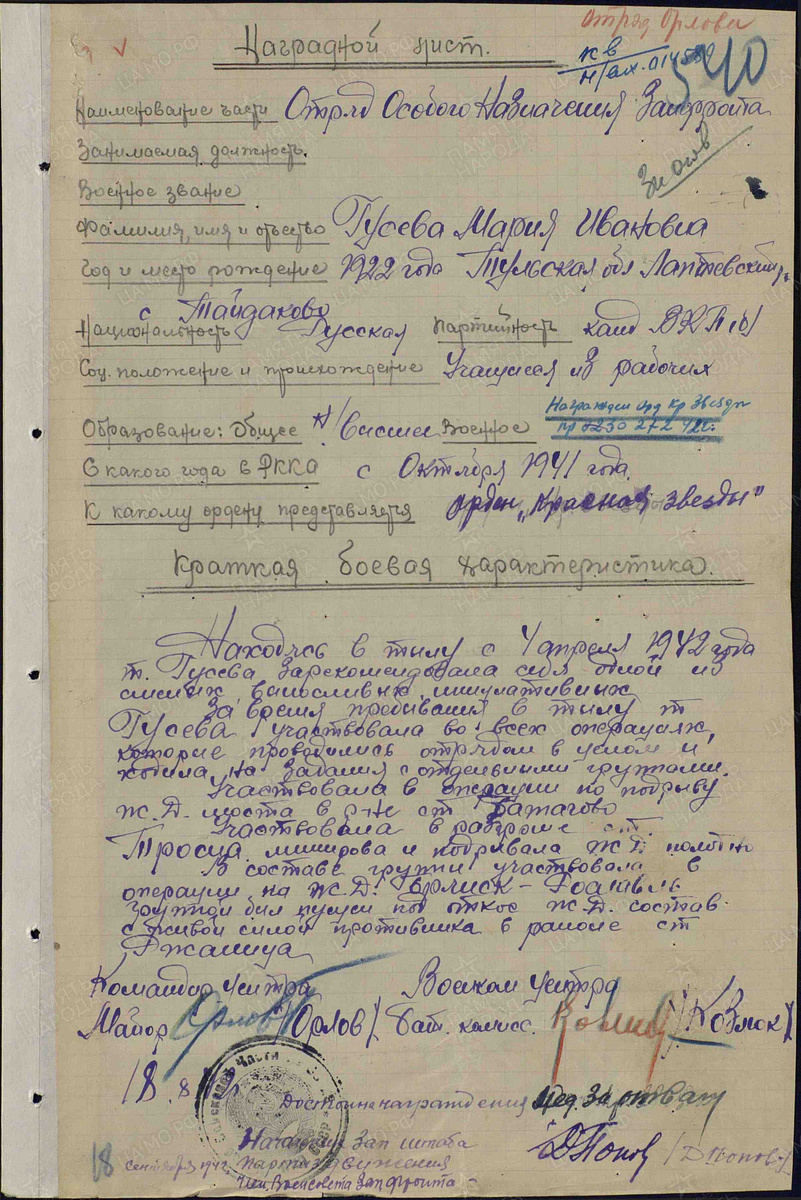 Отряд Орлова
Наградной лист.
КВ
540
Наименование части Отряд Особого Назначения Запфронта
Занимаемая должность.
Военное звание
Фамилия, имя и отчество Гусева Мария Ивановна
Год и место рождение 1922 года Тульская обл Лаптевский р.
с Тайдаково
Национальность Русская партийность канд ВКП(б)
Соц. положение и происхождение Учащиеся из рабочих
Награжден орд Кр Звезды
Образование: Общее н/высшее Военное
С какого года в РККА с Октября 1941 года.
К какому ордену представляется орден „Красная звезды"
Краткая боевая характеристика.
Находясь в тылу с 4 апреля 1942 года
т. Гусева зарекомендовала себя одной из
смелых, выносливых,
За время пребывания в тылу т
Гусева участвовала во всех операциях,
которые проводились отрядом в целом и
ходила на задания с отдельными группами.
Участвовала в операции по подрыву
ж.д. моста в р-не ст
Участвовала в разгроме ст.
Тросна, минировала и подрывала ж.д. полотно
В составе группы участвовала в
операции на ж.д. Брянск - Рославль
группой был пущен под откос ж.д. состав
с живой силой противника в районе ст
Ржаница
Командир центра Военком центра
Майор Орлов (Орлов) Бат. комисс.
18.8.42г
Достойна награждения мед. За отвагу
Начальник Зап штаба
партиз движения ДПопов /ДПопов/
18 сентября 194 г. Член Военсовета Запфронта -